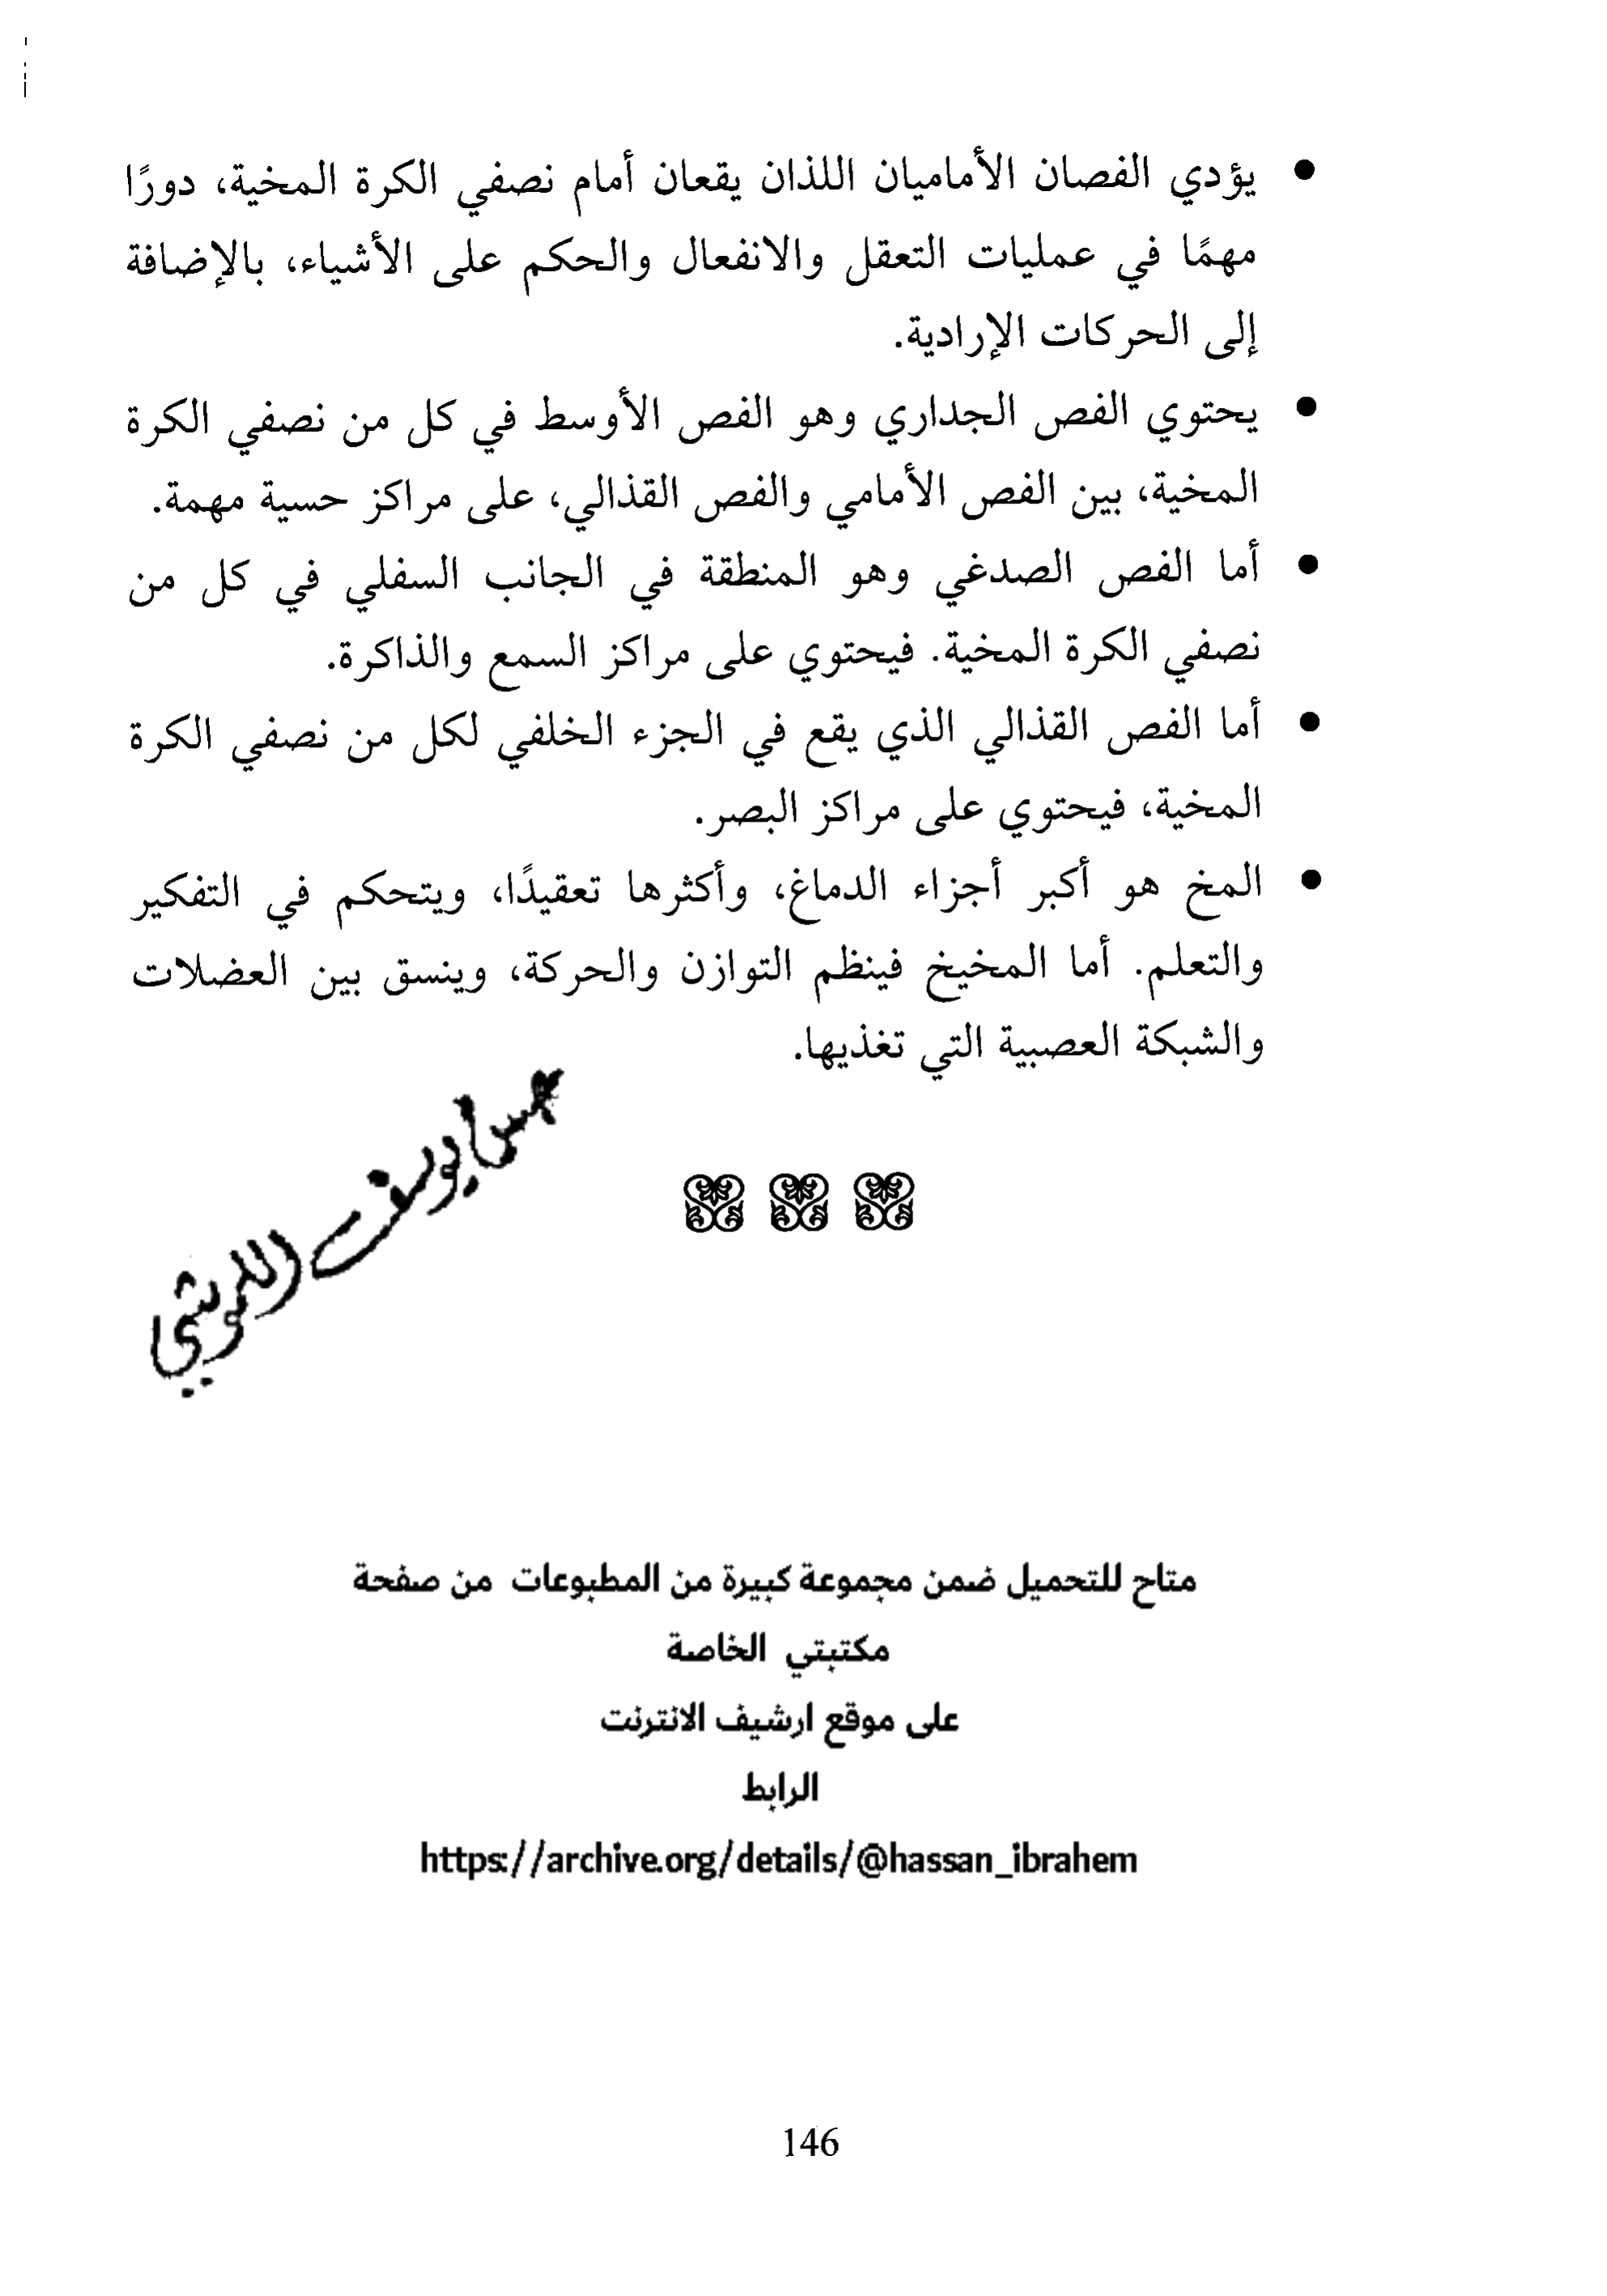 • يؤدي الفصان الأماميان اللذان يقعان أمام نصفي الكرة المخية، دورًا
مهمًا في عمليات التعقل والانفعال والحكم على الأشياء، بالإضافة
إلى الحركات الإرادية.
• يحتوي الفص الجداري وهو الفص الأوسط في كل من نصفي الكرة
المخية، بين الفص الأمامي والفص القذالي، على مراكز حسية مهمة.
• أما الفص الصدغي وهو المنطقة في الجانب السفلي في كل من
نصفي الكرة المخية. فيحتوي على مراكز السمع والذاكرة.
• أما الفص القذالي الذي يقع في الجزء الخلفي لكل من نصفي الكرة
المخية، فيحتوي على مراكز البصر.
• المخ هو أكبر أجزاء الدماغ، وأكثرها تعقيدًا، ويتحكم في التفكير
والتعلم. أما المخيخ فينظم التوازن والحركة، وينسق بين العضلات
والشبكة العصبية التي تغذيها.
متاح للتحميل ضمن مجموعة كبيرة من المطبوعات من صفحة
مكتبتي الخاصة
على موقع ارشيف الانترنت
الرابط
https://archive.org/details/@hassan_ibrahem
146